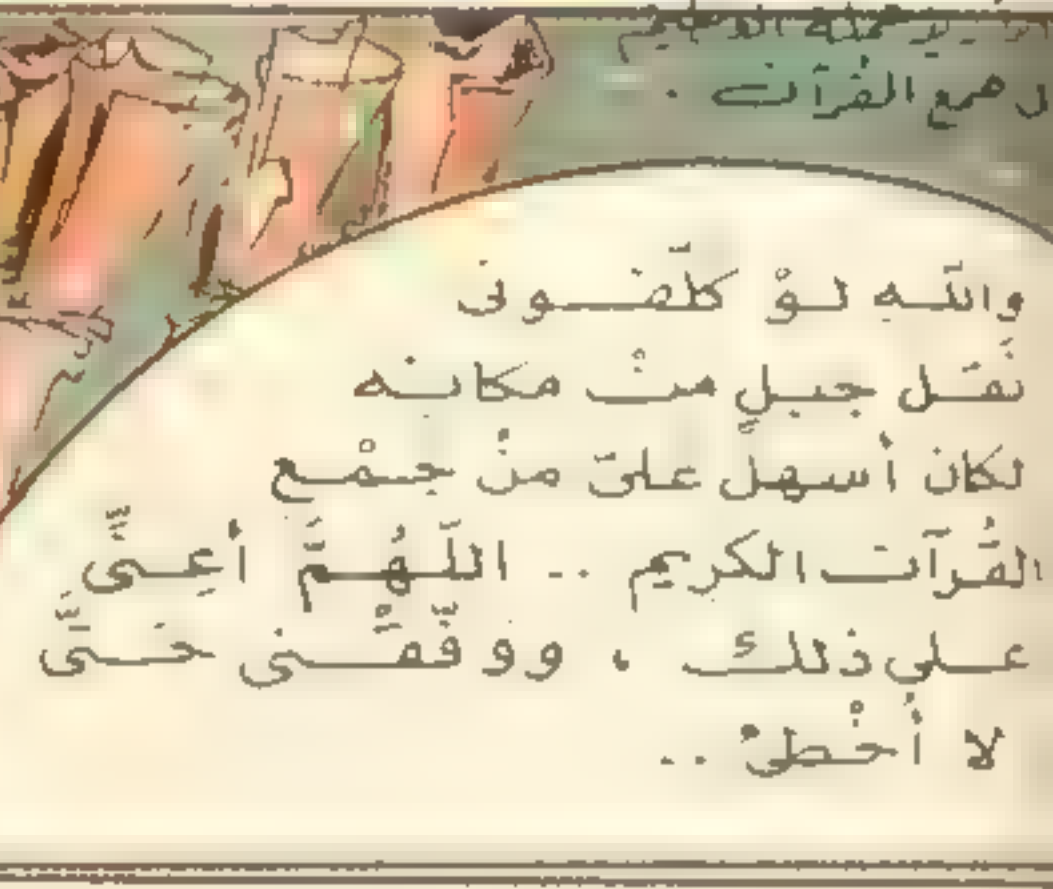 جمع القرآن .
والله لوْ كلّفونى
نقَل جبلٍ منْ مكانه
لكان أسهلَ علىّ منْ جمْع
القُرآن الكريم .. اللّهُمَّ أعِنِّى
على ذلك . ووفِّقْنى حتَّى
لا أخْطئ ..